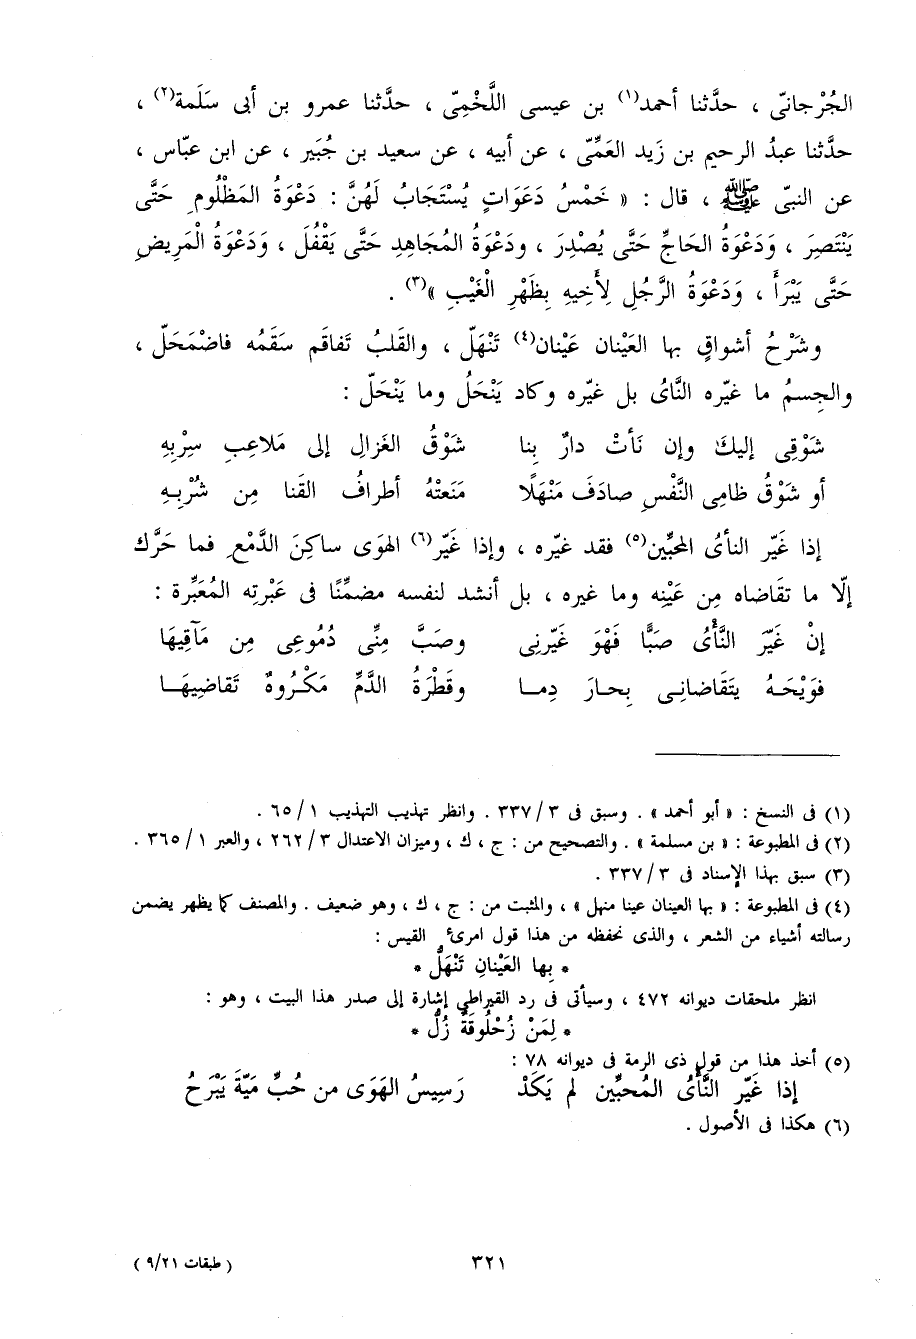 الجُرْجانىّ ، حدَّثنا أحمد(١) بن عيسى اللَّخْمِىّ ، حدَّثنا عمرو بن أبى سَلَمة(٢) ،
حدَّثنا عبدُ الرحيم بن زَيد العَمِّىّ ، عن أبيه ، عن سعيد بن جُبَير ، عن ابن عبّاس ،
عن النبىّ ﷺ ، قال : « خَمْسُ دَعَوَاتٍ يُسْتَجَابُ لَهُنَّ : دَعْوَةُ المَظْلُومِ حَتَّى
يَنْتَصِرَ ، وَدَعْوَةُ الحَاجِّ حَتَّى يُصْدِرَ ، ودَعْوَةُ المُجَاهِدِ حَتَّى يَقْفُلَ ، وَدَعْوَةُ الْمَرِيضِ
حَتَّى يَبْرَأَ ، وَدَعْوَةُ الرَّجُلِ لِأَخِيهِ بِظَهْرِ الْغَيْبِ »(٣) .
وشَرْحُ أشواقٍ بها العَيْنان عَيْنان(٤) تَنْهَلّ ، والقَلبُ تَفاقَم سَقَمُه فاضْمَحَلّ ،
والجِسمُ ما غيّره النَّاىُ بل غيّره وكاد يَنْحَلُ وما يَنْحَلّ :
شَوْقِى إليكَ وإن نَأتْ دارٌ بِنا شَوْقُ الغَزالِ إلى مَلاعِبِ سِرْبِهِ
أو شَوْقُ ظامِى النَّفْسِ صادَفَ مَنْهَلًا مَنَعتْهُ أطرافُ القَنا مِن شُرْبِـهِ
إذا غَيّر النأىُ المحبِّين(٥) فقد غيّره ، وإذا غَيّر(٦) الهَوَى ساكِنَ الدَّمْعِ فما حَرَّك
إلّا ما تقَاضاه مِن عَيْنِه وما غيره ، بل أنشد لنفسه مضمِّنًا فى عَبْرتِه المُعَبِّرة :
إنْ غَيّرَ النَّأْىُ صَبًّا فَهْوَ غَيّرنِى وصَبَّ مِنِّى دُمُوعِى مِن مَآقِيهَا
فَوَيْحَـهُ يتَقَاضانِـى بِحارَ دِمـا وقَطْرَةُ الدَّمِّ مَكْـرُوهٌ تَقاضِيهَـا
(١) فى النسخ : « أبو أحمد » . وسبق فى ٣ / ٣٣٧ . وانظر تهذيب التهذيب ١ / ٦٥ .
(٢) فى المطبوعة : « بن مسلمة » . والتصحيح من : ج ، ك ، وميزان الاعتدال ٣ / ٢٦٢ ، والعبر ١ / ٣٦٥ .
(٣) سبق بهذا الإسناد فى ٣ / ٣٣٧ .
(٤) فى المطبوعة : « بها العينان عينا منهل » ، والمثبت من : ج ، ك ، وهو ضعيف . والمصنف كما يظهر يضمن
رسالته أشياء من الشعر ، والذى نحفظه من هذا قول امرئ القيس :
* بِها العَيْنانِ تَنْهَلُّ *
انظر ملحقات ديوانه ٤٧٢ ، وسيأتى فى رد القيراطى إشارة إلى صدر هذا البيت ، وهو :
* لِمَنْ زُحْلُوقَةٌ زُلُّ *
(٥) أخذ هذا من قول ذى الرمة فى ديوانه ٧٨ :
إذا غَيّر النَّأْىُ المُحبِّين لم يَكَدْ رَسِيسُ الهَوَى من حُبِّ مَيّةَ يَبْرَحُ
(٦) هكذا فى الأصول .
٣٢١
( طبقات ٩/٢١ )